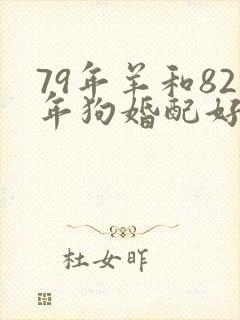 79年羊和82
年狗婚配好
杜女昨